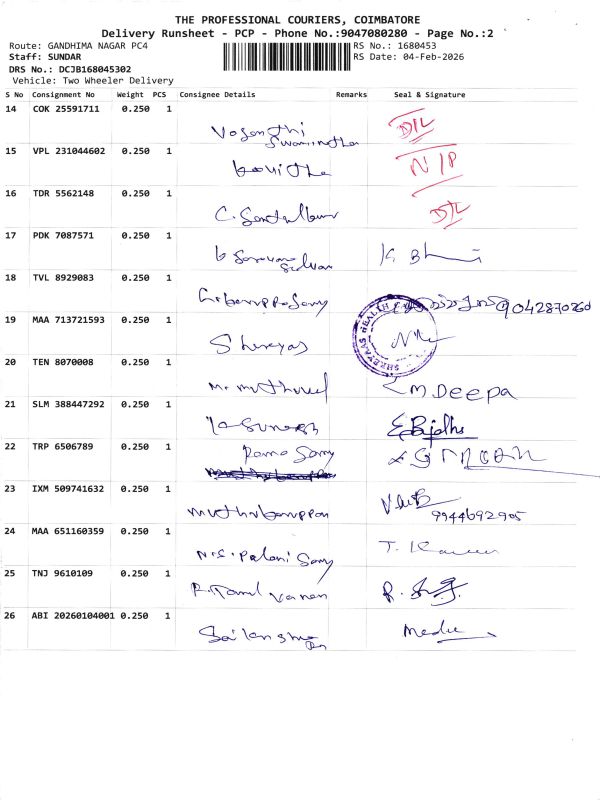 THE PROFESSIONAL COURIERS, COIMBATORE
Delivery Runsheet - PCP - Phone No.:9047080280 - Page No.:2
Route: GANDHIMA NAGAR PC4 RS No.: 1680453
Staff: SUNDAR RS Date: 04-Feb-2026
DRS No.: DCJB168045302
Vehicle: Two Wheeler Delivery
S No Consignment No Weight PCS Consignee Details Remarks Seal & Signature
14 COK 25591711 0.250 1
Vasanthi D/L
Swaminathan
15 VPL 231044602 0.250 1
Kavitha N/P
16 TDR 5562148 0.250 1
C. D/L
17 PDK 7087571 0.250 1
18 TVL 8929083 0.250 1
9042870260
19 MAA 713721593 0.250 1
Shreyas
SHREYAAS HEALTH
20 TEN 8070008 0.250 1
M. Muthuvel M Deepa
21 SLM 388447292 0.250 1
Suresh
22 TRP 6506789 0.250 1
Rama Samy
23 IXM 509741632 0.250 1
Muthukaruppan
9944692905
24 MAA 651160359 0.250 1
N.S. Palani Samy T.
25 TNJ 9610109 0.250 1
R. Tamil Vanan R.
26 ABI 20260104001 0.250 1